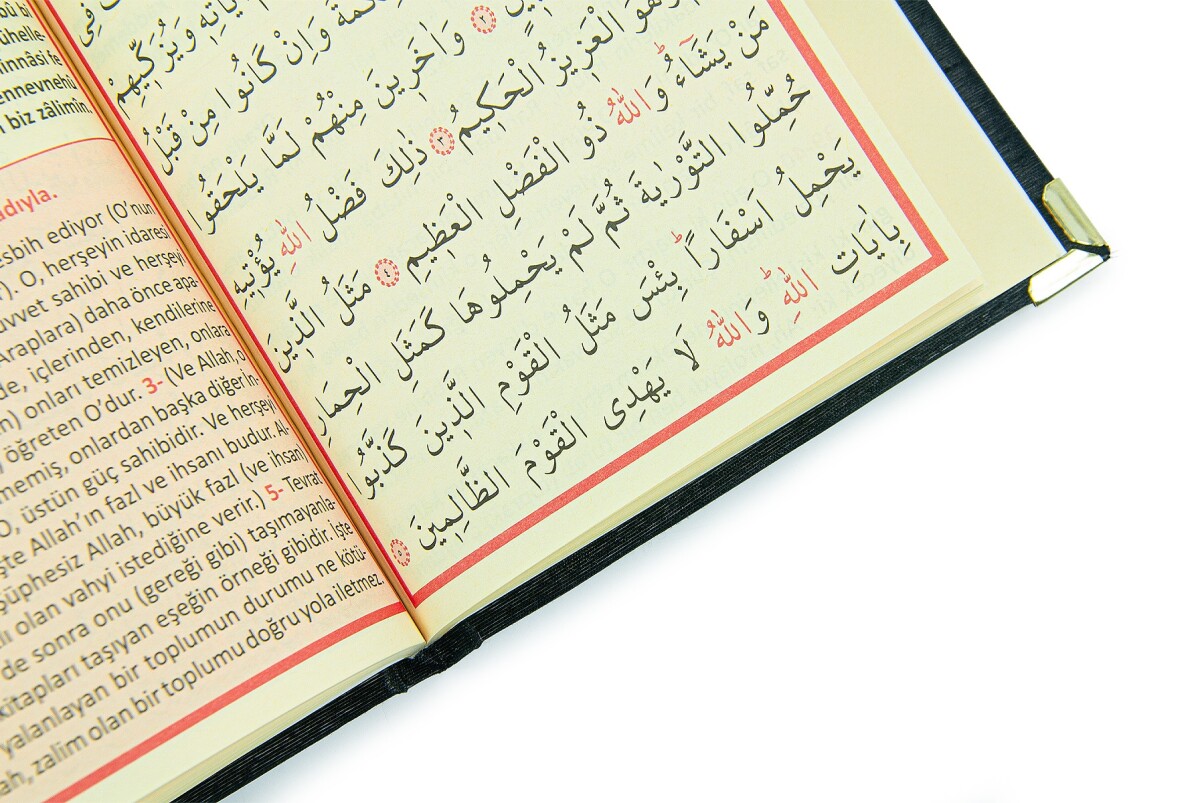 biz zâlimîn
adıyla.
tesbih ediyor (O'nun
O, herşeyin idaresi
kuvvet sahibi ve herşeyi
Araplara) daha önce apa-
de, içlerinden, kendilerine
onları temizleyen, onlara
öğreten O'dur. 3- (Ve Allah, o
onlardan başka diğer in-
O, üstün güç sahibidir. Ve herşeyi
İşte Allah'ın fazl ve ihsanı budur. Al-
şüphesiz Allah, büyük fazl (ve ihsan)
olan vahyi istediğine verir.) 5- Tevrat
de sonra onu (gereği gibi) taşımayanla-
kitapları taşıyan eşeğin örneği gibidir. İşte
yalanlayan bir toplumun durumu ne kötü-
zalim olan bir toplumu doğru yola iletmez.
فِى
اٰيَاتِهِ وَيُزَكِّيهِمْ
وَاِنْ كَانُوا مِنْ قَبْلُ
٢ وَاٰخَرِينَ مِنْهُمْ لَمَّا يَلْحَقُوا
وَهُوَ الْعَزِيزُ الْحَكِيمُ ٣ ذٰلِكَ فَضْلُ اللّٰهِ يُؤْتِيهِ
مَنْ يَشَٓاءُ وَاللّٰهُ ذُو الْفَضْلِ الْعَظِيمِ ٤ مَثَلُ الَّذِينَ
حُمِّلُوا التَّوْرٰيةَ ثُمَّ لَمْ يَحْمِلُوهَا كَمَثَلِ الْحِمَارِ
يَحْمِلُ اَسْفَارًاۜ بِئْسَ مَثَلُ الْقَوْمِ الَّذِينَ كَذَّبُوا
بِاٰيَاتِ اللّٰهِۜ وَاللّٰهُ لَا يَهْدِى الْقَوْمَ الظَّالِمِينَ ٥